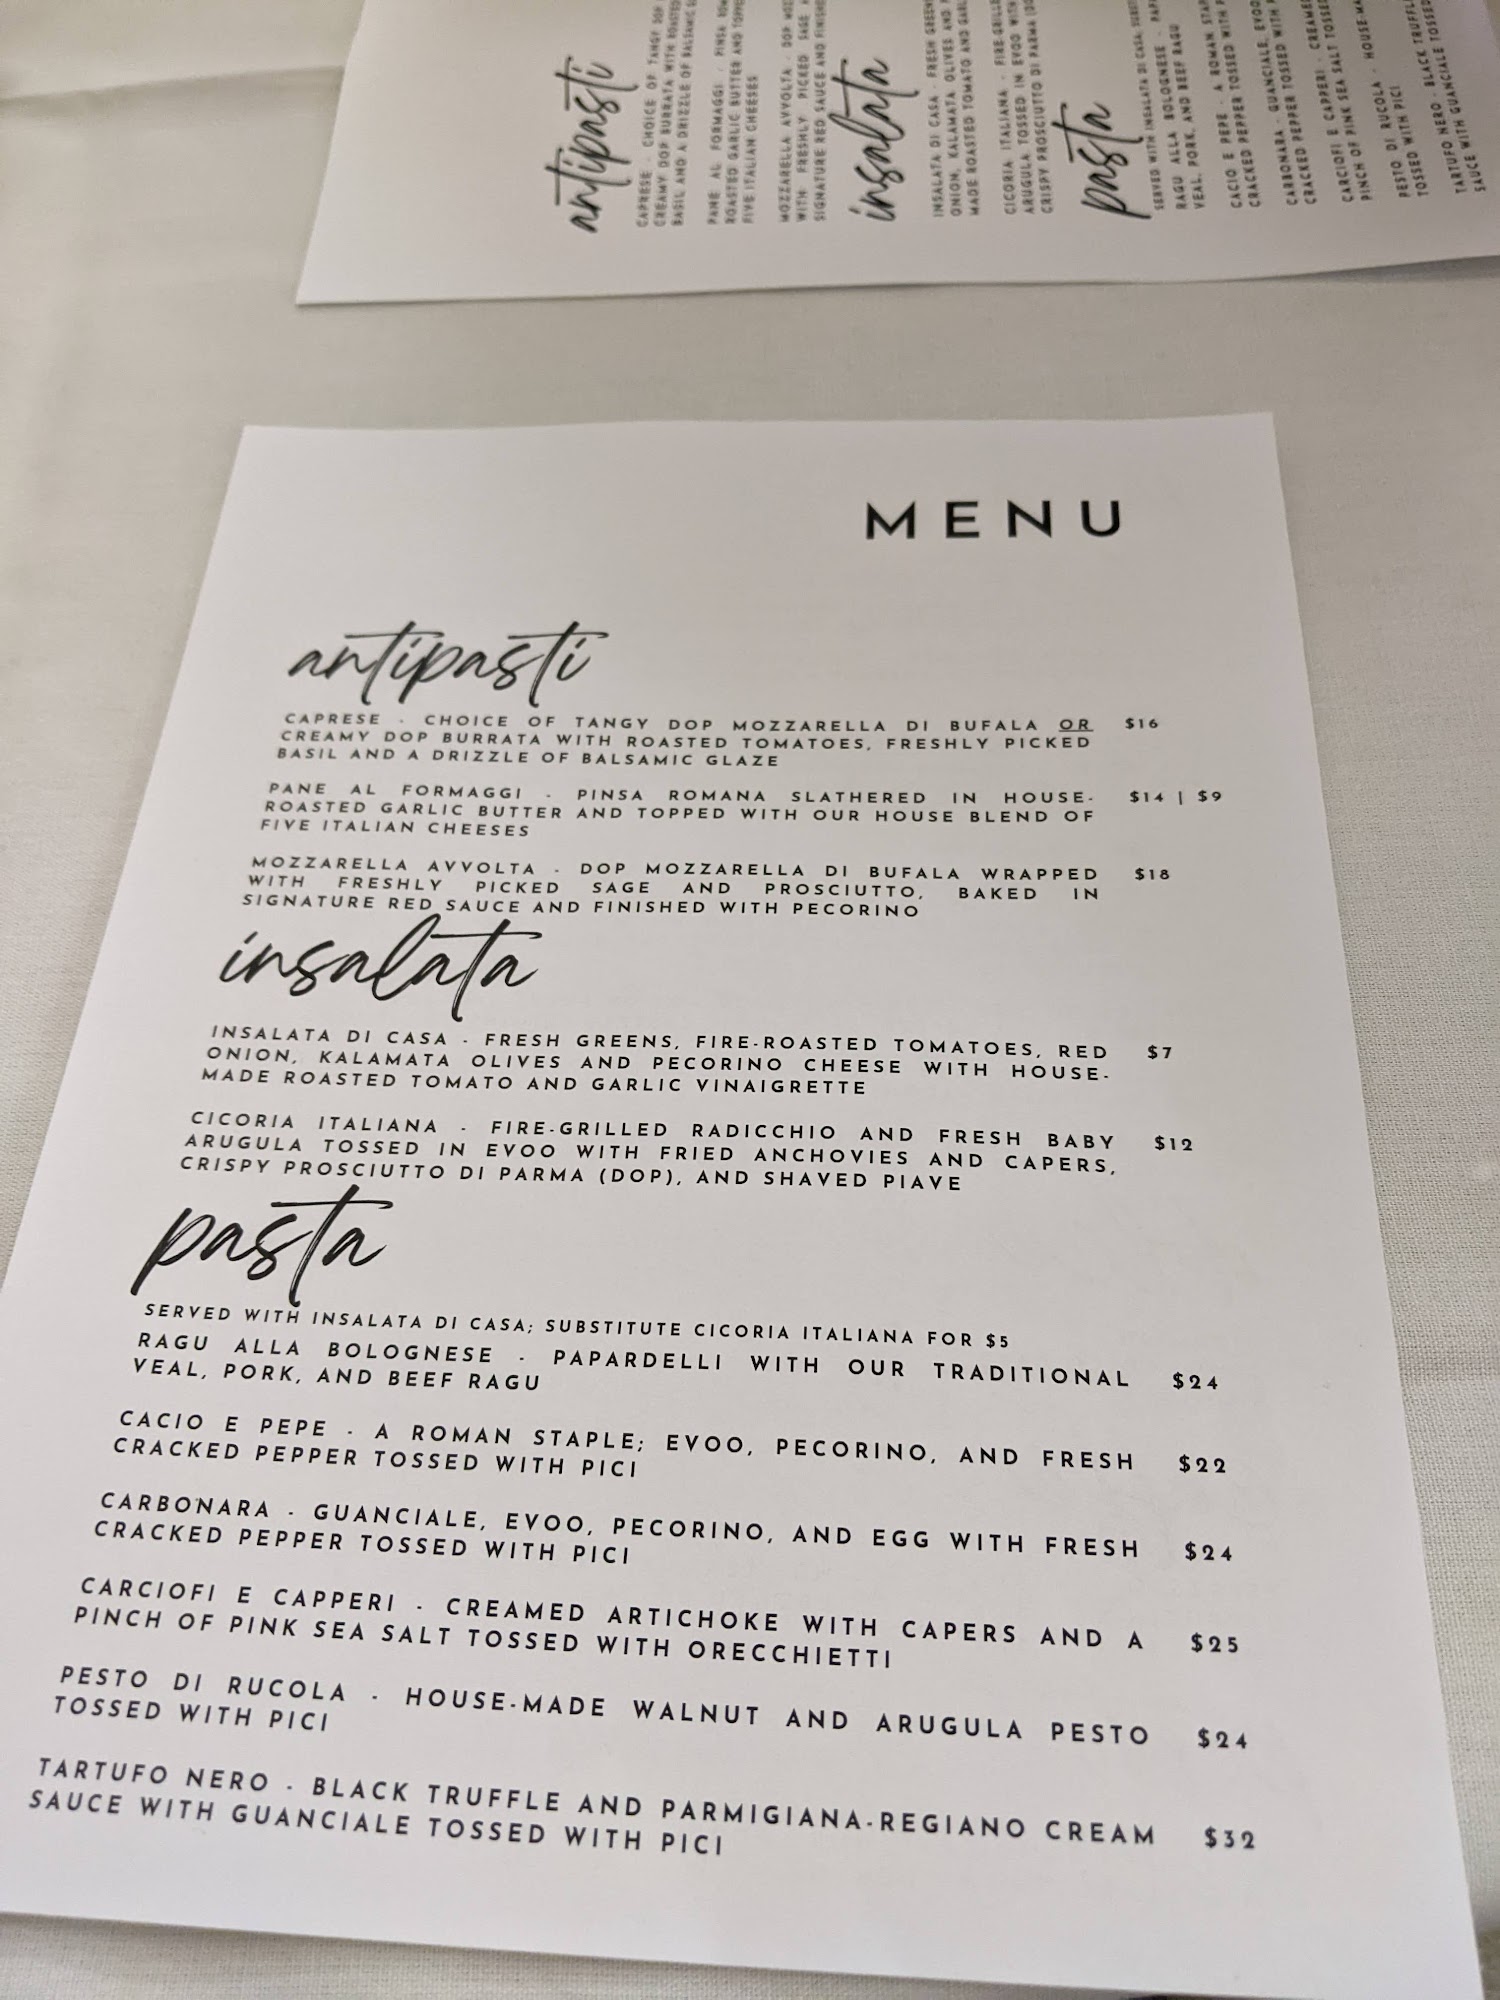 antipasti
CAPRESE - CHOICE OF TANGY DOP
CREAMY DOP BURRATA WITH ROASTED
BASIL AND A DRIZZLE OF BALSAMIC
PANE AL FORMAGGI - PINSA
ROASTED GARLIC BUTTER AND TOPPED
FIVE ITALIAN CHEESES
MOZZARELLA AVVOLTA - DOP
WITH FRESHLY PICKED SAGE
SIGNATURE RED SAUCE AND FINISHED
insalata
INSALATA DI CASA - FRESH GREENS
ONION, KALAMATA OLIVES AND
MADE ROASTED TOMATO AND
CICORIA ITALIANA - FIRE-GRILLED
ARUGULA TOSSED IN EVOO WITH
CRISPY PROSCIUTTO DI PARMA
pasta
SERVED WITH INSALATA DI CASA;
RAGU ALLA BOLOGNESE -
VEAL, PORK, AND BEEF RAGU
CACIO E PEPE - A ROMAN
CRACKED PEPPER TOSSED WITH
CARBONARA - GUANCIALE, EVOO
CRACKED PEPPER TOSSED WITH
CARCIOFI E CAPPERI - CREAMED
PINCH OF PINK SEA SALT TOSSED
PESTO DI RUCOLA - HOUSE-
TOSSED WITH PICI
TARTUFO NERO - BLACK TRUFFLE
SAUCE WITH GUANCIALE TOSSED
MENU
antipasti
CAPRESE - CHOICE OF TANGY DOP MOZZARELLA DI BUFALA OR $16
CREAMY DOP BURRATA WITH ROASTED TOMATOES, FRESHLY PICKED
BASIL AND A DRIZZLE OF BALSAMIC GLAZE
PANE AL FORMAGGI - PINSA ROMANA SLATHERED IN HOUSE- $14 | $9
ROASTED GARLIC BUTTER AND TOPPED WITH OUR HOUSE BLEND OF
FIVE ITALIAN CHEESES
MOZZARELLA AVVOLTA - DOP MOZZARELLA DI BUFALA WRAPPED $18
WITH FRESHLY PICKED SAGE AND PROSCIUTTO, BAKED IN
SIGNATURE RED SAUCE AND FINISHED WITH PECORINO
insalata
INSALATA DI CASA - FRESH GREENS, FIRE-ROASTED TOMATOES, RED $7
ONION, KALAMATA OLIVES AND PECORINO CHEESE WITH HOUSE-
MADE ROASTED TOMATO AND GARLIC VINAIGRETTE
CICORIA ITALIANA - FIRE-GRILLED RADICCHIO AND FRESH BABY $12
ARUGULA TOSSED IN EVOO WITH FRIED ANCHOVIES AND CAPERS,
CRISPY PROSCIUTTO DI PARMA (DOP), AND SHAVED PIAVE
pasta
SERVED WITH INSALATA DI CASA; SUBSTITUTE CICORIA ITALIANA FOR $5
RAGU ALLA BOLOGNESE - PAPARDELLI WITH OUR TRADITIONAL $24
VEAL, PORK, AND BEEF RAGU
CACIO E PEPE - A ROMAN STAPLE; EVOO, PECORINO, AND FRESH $22
CRACKED PEPPER TOSSED WITH PICI
CARBONARA - GUANCIALE, EVOO, PECORINO, AND EGG WITH FRESH $24
CRACKED PEPPER TOSSED WITH PICI
CARCIOFI E CAPPERI - CREAMED ARTICHOKE WITH CAPERS AND A $25
PINCH OF PINK SEA SALT TOSSED WITH ORECCHIETTI
PESTO DI RUCOLA - HOUSE-MADE WALNUT AND ARUGULA PESTO $24
TOSSED WITH PICI
TARTUFO NERO - BLACK TRUFFLE AND PARMIGIANA-REGIANO CREAM $32
SAUCE WITH GUANCIALE TOSSED WITH PICI